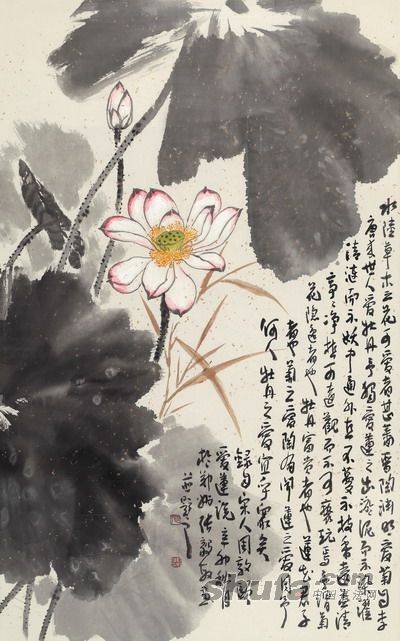 水陸草木之花可愛者甚蕃晉陶淵明愛菊自李
唐來世人愛牡丹予獨愛蓮之出淤泥而不染濯
清漣而不妖中通外直不蔓不枝香遠益清
亭亭淨植可遠觀而不可褻玩焉予謂菊
花隱逸者也牡丹富貴者也蓮花君子
者也菊之愛陶後聞蓮之愛同予
何人牡丹之愛宜乎眾矣
錄自宋人周敦頤
愛蓮說辛卯月
於鄭州張
並題